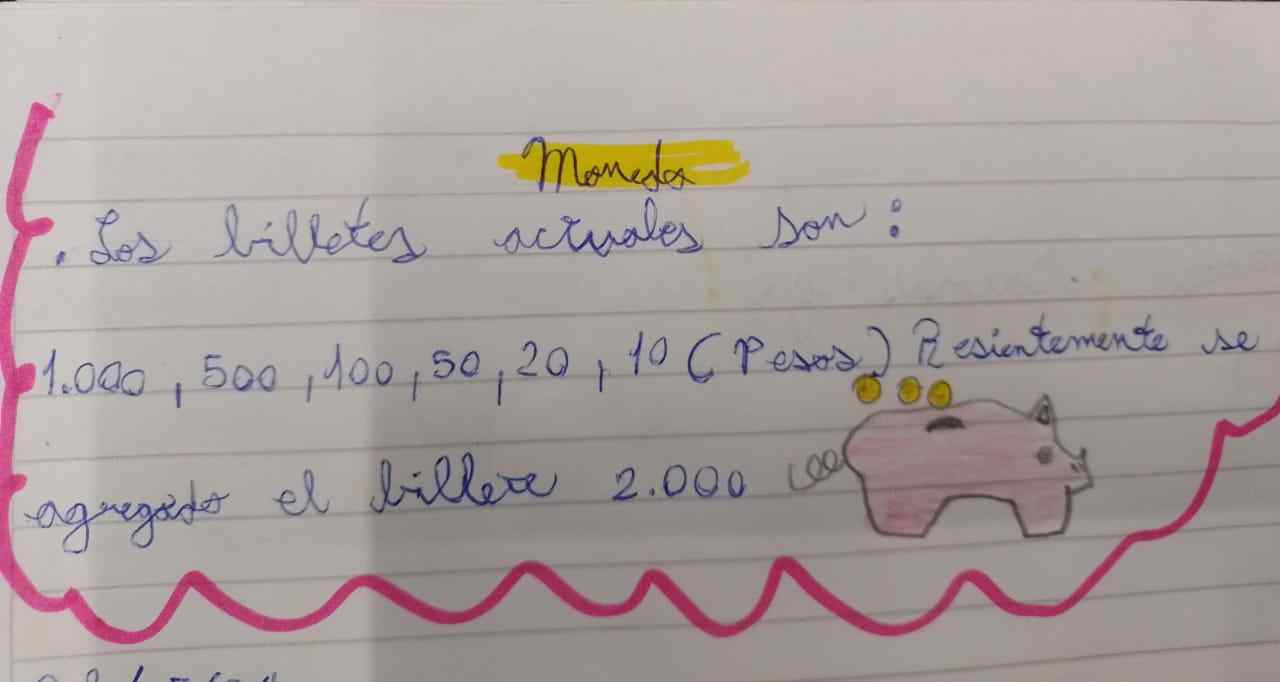 Moneda
. Los billetes actuales son :
1.000 , 500 , 100 , 50 , 20 , 10 ( Pesos ) Resientemente se
agregado el billete 2.000